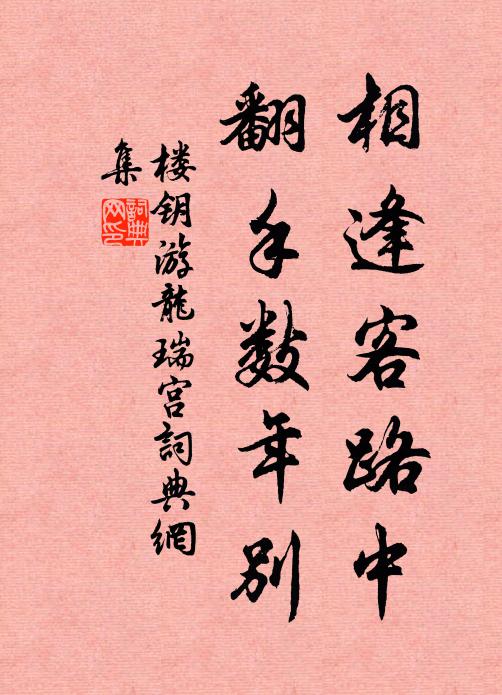 相逢客路中
翻手数年别
楼钥游龍瑞宫詞典網
集
詞典
网印